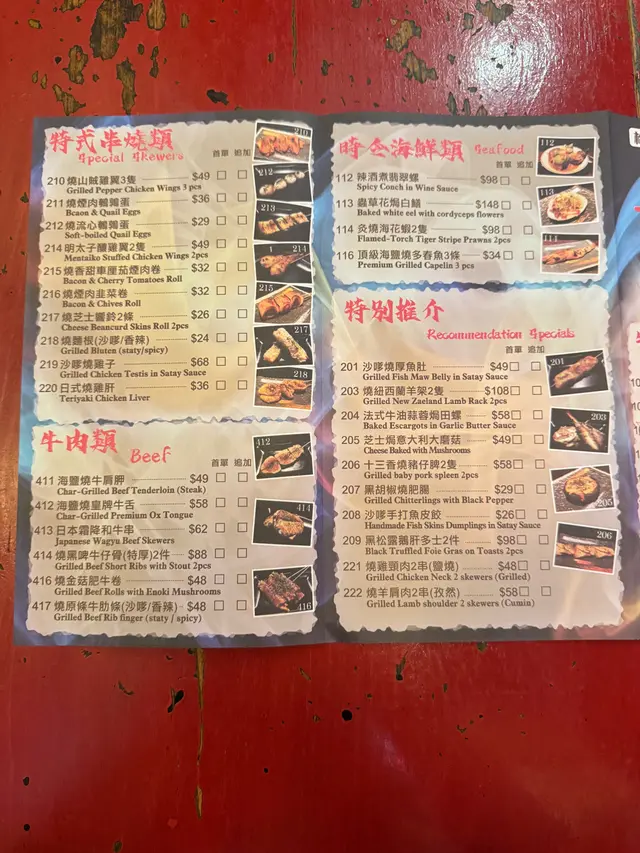 特式串燒類
Special Skewers
首單 追加
210 燒山賊雞翼3隻 $49
Grilled Pepper Chicken Wings 3 pcs
211 燒煙肉鵪鶉蛋 $36
Bcaon & Quail Eggs
212 燒流心鵪鶉蛋 $29
Soft-boiled Quail Eggs
214 明太子釀雞翼2隻 $49
Mentaiko Stuffed Chicken Wings 2pcs
215 燒香甜車厘茄煙肉卷 $32
Bacon & Cherry Tomatoes Roll
216 燒煙肉韭菜卷 $32
Bacon & Chives Roll
217 燒芝士響鈴2條 $26
Cheese Beancurd Skins Roll 2pcs
218 燒麵根(沙嗲/香辣) $24
Grilled Bluten (staty/spicy)
219 沙嗲燒雞子 $68
Grilled Chicken Testis in Satay Sauce
220 日式燒雞肝 $36
Teriyaki Chicken Liver
210
212
213
214
215
217
218
牛肉類
Beef
首單 追加
411 海鹽燒牛肩胛 $49
Char-Grilled Beef Tenderloin (Steak)
412 海鹽燒皇牌牛舌 $58
Char-Grilled Premium Ox Tongue
413 日本霜降和牛串 $62
Japanese Wagyu Beef Skewers
414 燒黑啤牛仔骨(特厚)2件 $88
Grilled Beef Short Ribs with Stout 2pcs
416 燒金菇肥牛卷 $48
Grilled Beef Rolls with Enoki Mushrooms
417 燒原條牛肋條(沙嗲/香辣) $48
Grilled Beef Rib finger (staty / spicy)
412
414
416
時令海鮮類
Seafood
首單 追加
112 辣酒煮翡翠螺 $98
Spicy Conch in Wine Sauce
113 蟲草花焗白鱔 $148
Baked white eel with cordyceps flowers
114 炙燒海花蝦2隻 $98
Flamed-Torch Tiger Stripe Prawns 2pcs
116 頂級海鹽燒多春魚3條 $34
Premium Grilled Capelin 3 pcs
112
113
114
特別推介
Recommendation Specials
首單 追加
201 沙嗲燒厚魚肚 $49
Grilled Fish Maw Belly in Satay Sauce
203 燒紐西蘭羊架2隻 $108
Grilled New Zaeland Lamb Rack 2pcs
204 法式牛油蒜蓉焗田螺 $58
Baked Escargots in Garlic Butter Sauce
205 芝士焗意大利大磨菇 $49
Cheese Baked with Mushrooms
206 十三香燒豬仔脾2隻 $58
Grilled baby pork spleen 2pcs
207 黑胡椒燒肥腸 $29
Grilled Chitterlings with Black Pepper
208 沙嗲手打魚皮餃 $26
Handmade Fish Skins Dumplings in Satay Sauce
209 黑松露鵝肝多士2件 $98
Black Truffled Foie Gras on Toasts 2pcs
221 燒雞頸肉2串(鹽燒) $48
Grilled Chicken Neck 2 skewers (Grilled)
222 燒羊肩肉2串(孜然) $58
Grilled Lamb shoulder 2 skewers (Cumin)
201
203
205
206